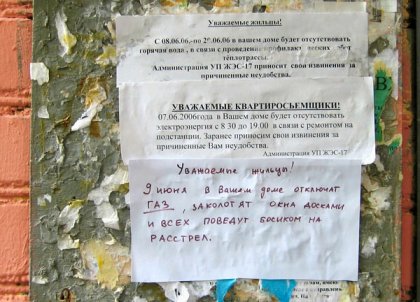 Уважаемые жильцы!
С 08.06.06.-по 20.06.06 в вашем доме будет отсутствовать
горячая вода, в связи с проведением профилактических работ
теплотрассы.
Администрация УП ЖЭС-17 приносит свои извинения за
причиненные неудобства.
УВАЖАЕМЫЕ КВАРТИРОСЪЕМЩИКИ!
07.06.2006года в Вашем доме будет отсутствовать
электроэнергия с 8 30 до 19.00 в связи с ремонтом на
подстанции. Заранее приносим свои извинения за
причиненные Вам неудобства.
Администрация УП ЖЭС-17
Уважаемые жильцы!
9 июня в Вашем доме отключат
ГАЗ, заколотят окна досками
и всех поведут босиком на
расстрел.
В